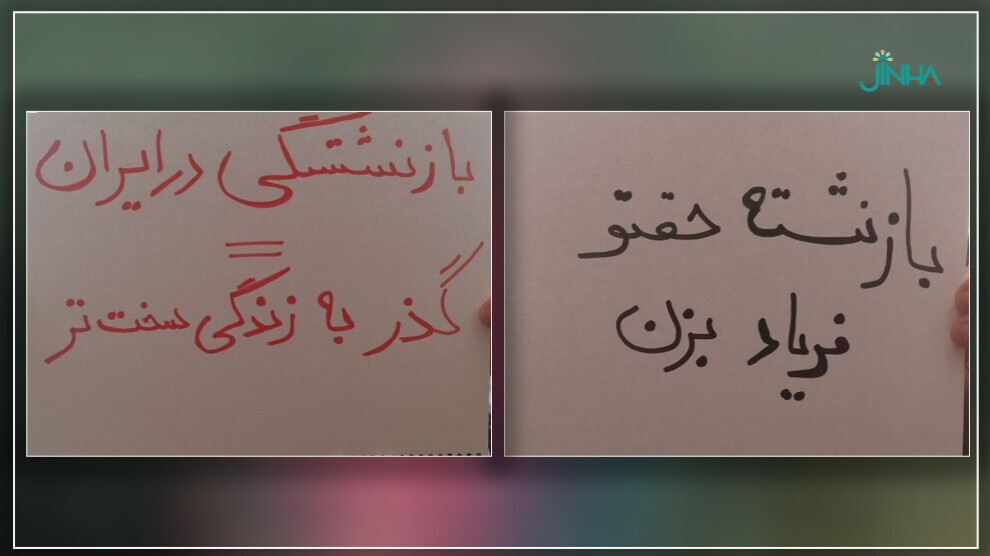 JINHA
بازنشستگی در ایران
=
گذر به زندگی سخت تر
بازنشته حقتو
فریاد بزن